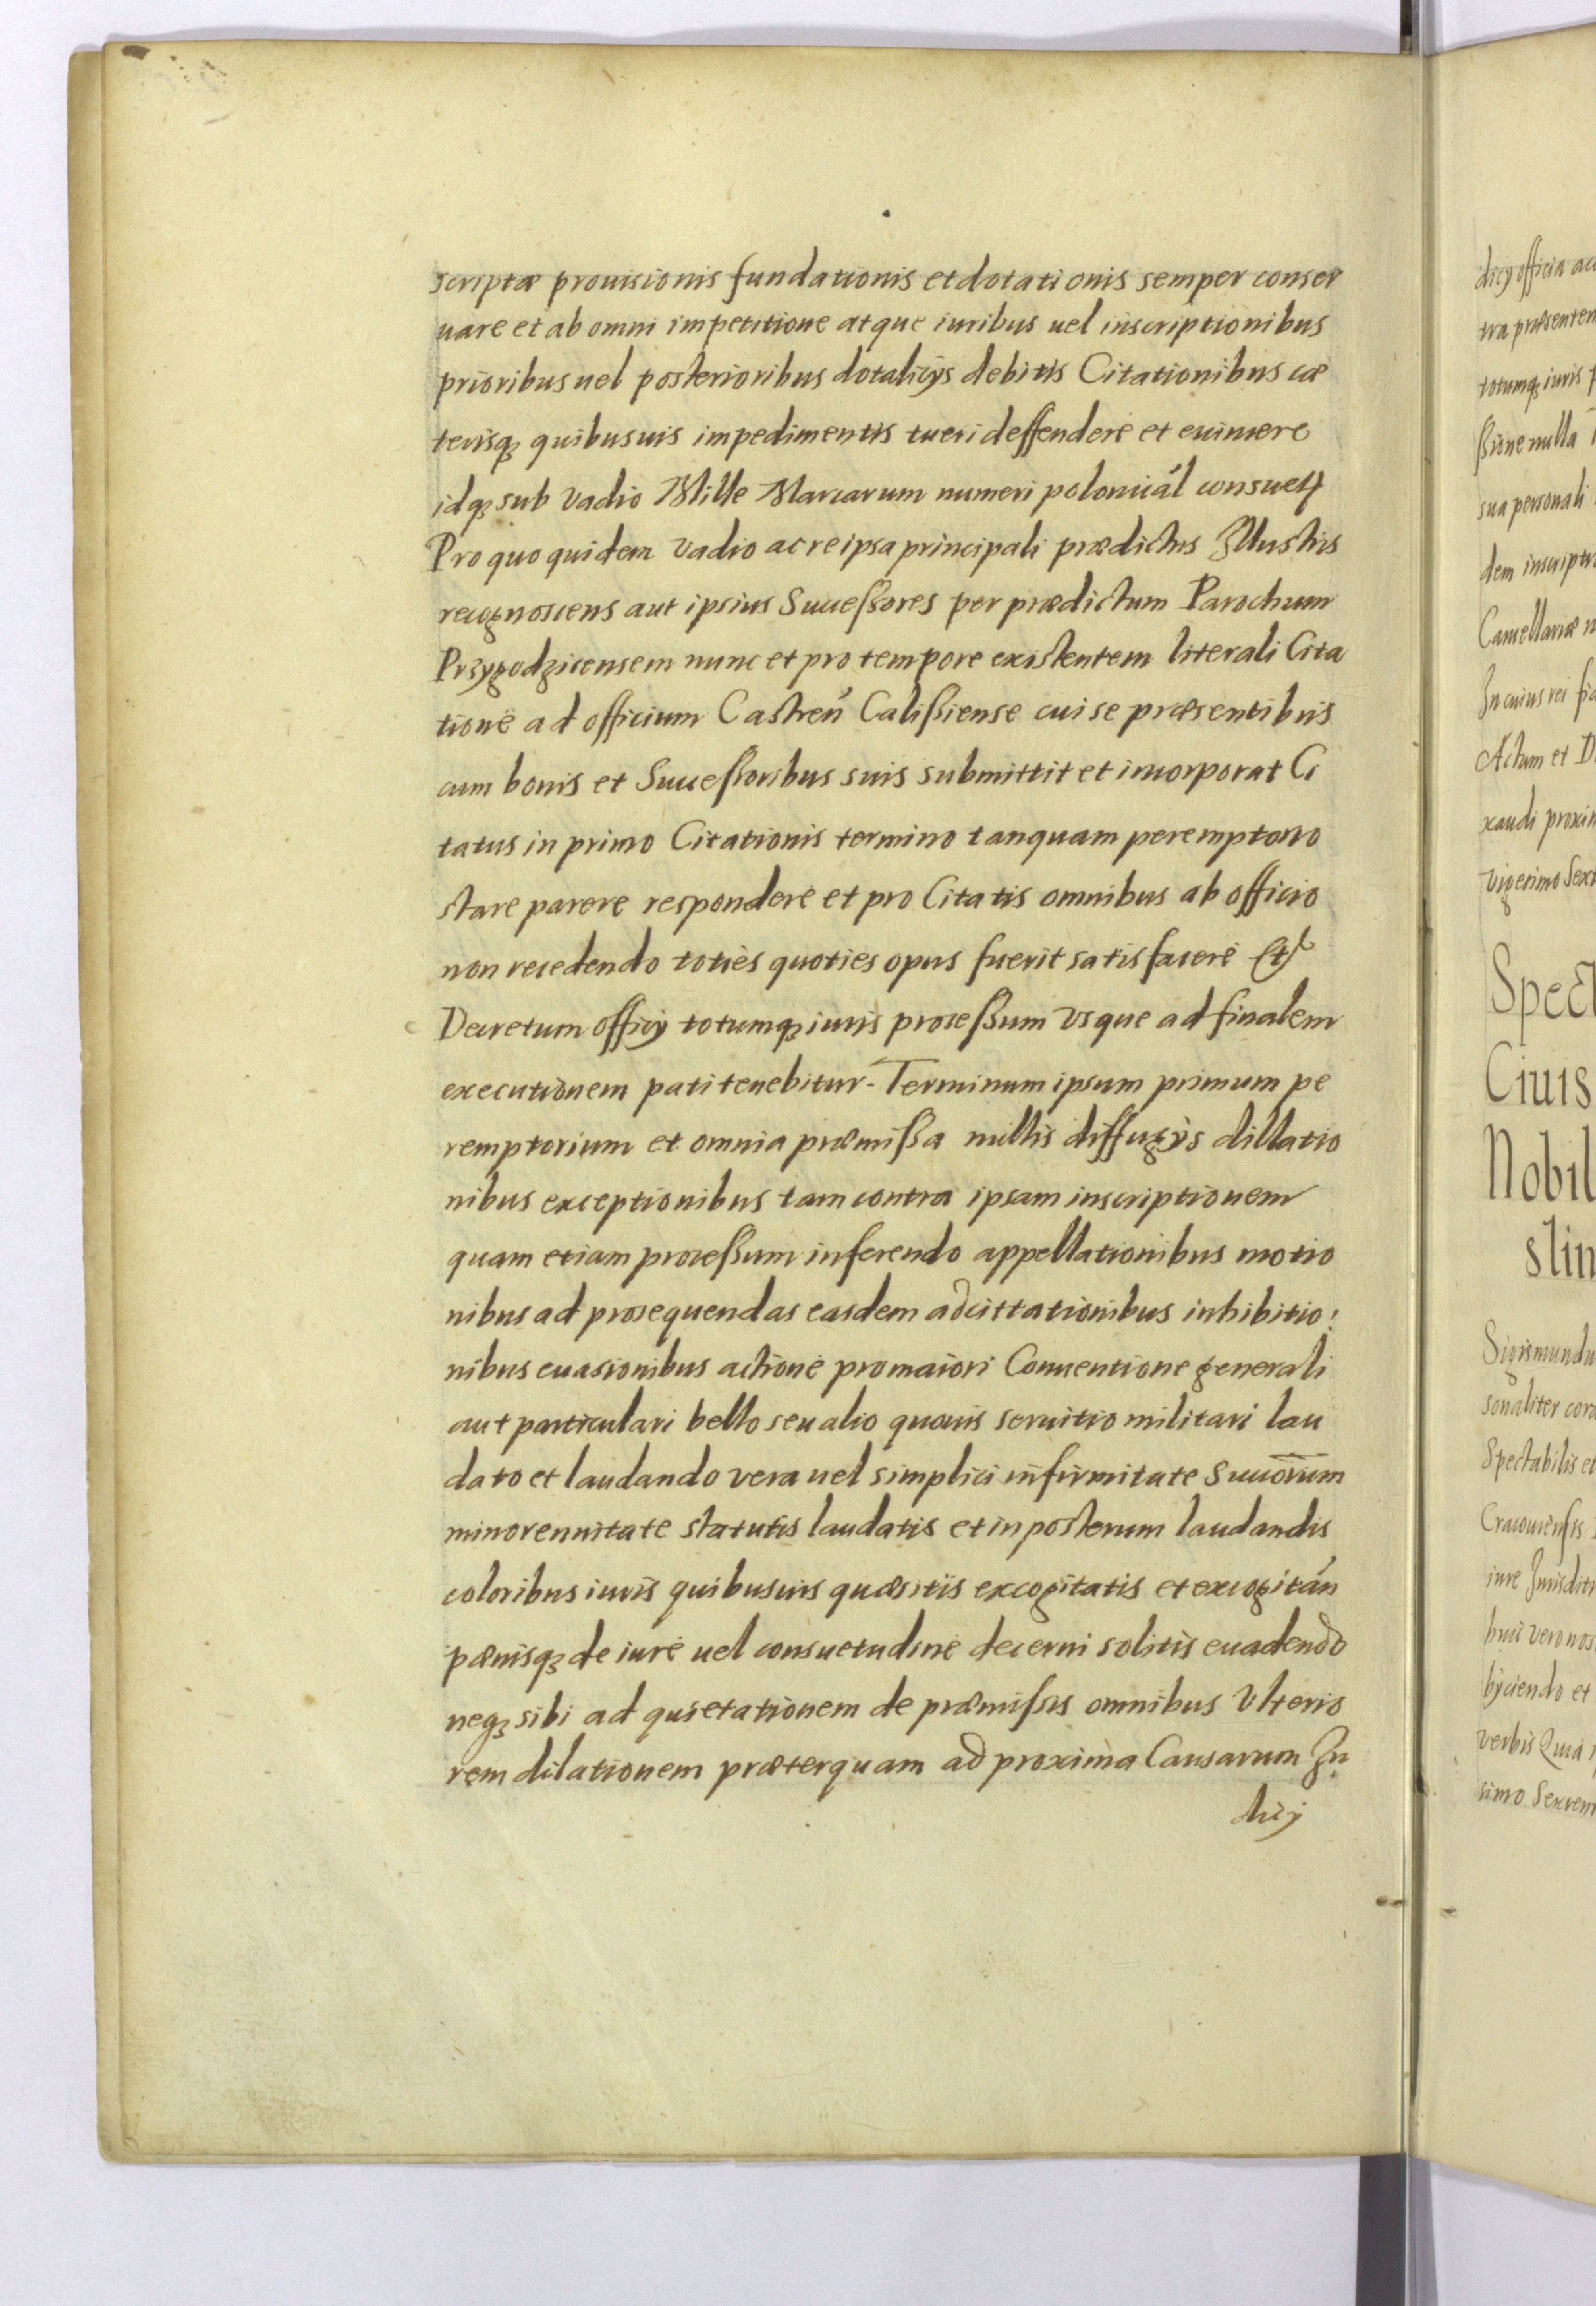 scriptæ prouisionis fundationis et dotationis semper conser
uare et ab omni impetitione atque iuribus uel inscriptionibus
prioribus uel posterioribus dotalicÿs debitis Citationibus cæ
terisqꝫ quibusuis impedimentis tueri deffendere et euincere
idqꝫ sub vadio Mille Marcarum numeri polonicál consuetꝝ
Pro quo quidem vadio ac re ipsa principali prædictus Illustris
recognoscens aut ipsius Successores per prædictum Parochum
Przygodzicensem nunc et pro tempore existentem literali Cita
tione ad officium Castreń Calissiense cui se præsentibus
cum bonis et Successoribus suis submittit et incorporat Ci
tatus in primo Citationis termino tanquam peremptorio
stare parere respondere et pro Citatis omnibus ab officio
non recedendo toties quoties opus fuerit satisfacere Et
Decretum officÿ totumqꝫ iuris processum vsque ad finalem
executionem pati tenebitur. Terminum ipsum primum pe
remptorium et omnia præmissa nullis diffugÿs dillatio
nibus exceptionibus tam contra ipsam inscriptionem
quam etiam processum inferendo appellationibus motio
nibus ad prosequendas easdem adcittationibus inhibitio:
nibus euasionibus actione pro maiori Conuentione generali
aut particulari bello seu alio quouis seruitio militari lau
dato et laudando vera uel simplici infirmitate Succōrum
minorennitate statutis laudatis et in posterum laudandis
coloribus iuris quibusuis quæsitis excogitatis et excogitán
pænisqꝫ de iure uel consuetudine decerni solitis euadendo
neqꝫ sibi ad quietationem de præmissis omnibus Vlterio
rem dilationem præterquam ad proxima Causarum Iu
dicÿ
dicÿ officia ac
tra præsentem
totumqꝫ iuris p
ssione nulla
sua personali
dem inscripti
Cancellariæ
In cuius rei fid
Actum et D
xaudi proxim
vigesimo Sex
Spect
Ciuis
Nobil
slin
Sigismundu
sonaliter cora
Spectabilis et
Cracouiensis
iure Iurisditi
huic vero nos
bÿciendo et
verbis Quia
simo Sexcen